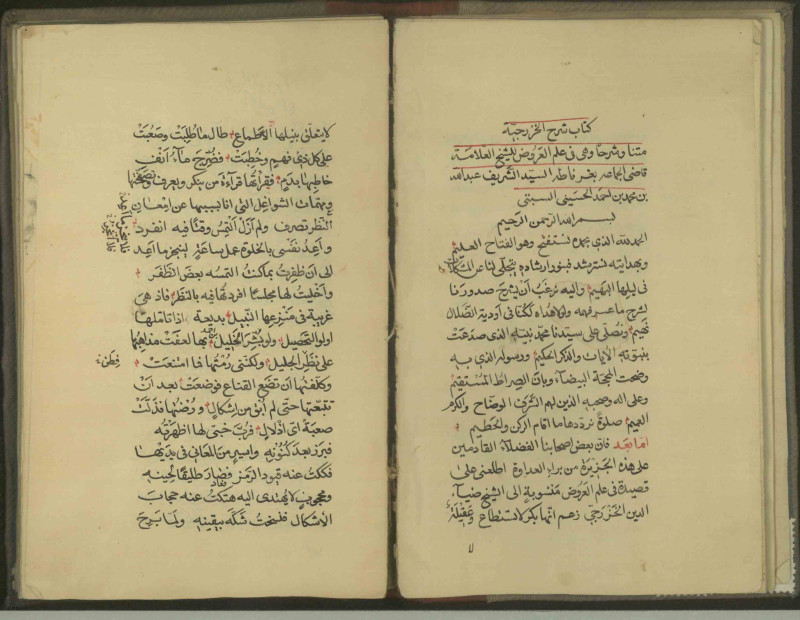 كتاب شرح الخزرجية
متنا وشرحا وهي في علم العروض للشيخ العلامة
قاضي الجماعه بغرناطه السيد الشريف عبدالله
بن محمد بن احمد الحسيني السبتي
بسم الله الرحمن الرحيم
الحمد لله الذي بحمده نستفتح وهو الفتاح العليم
وبهدايته نسترشد فبنور ارشاده يتجلى لنا عن المشكلات
في ليلها البهيم واليه نرغب ان يشرح صدورنا
لشرح ما عسر فهمه ولولا هداه لكنا في اودية الضلال
نهيم ونصلي على سيدنا محمد نبيه الذي صدعت
بنبوته الآيات والذكر الحكيم ورسوله الذي به
وضحت المحجة البيضاء وبان الصراط المستقيم
وعلى آله وصحبه الذين لهم الشرف الوضاح والكرم
العميم صلوة نرددها ما اقام الركن والحطيم
اما بعد فان بعض اصحابنا الفضلاء القادمين
على هذه الجزيرة من بر العداوة اطلعني على
قصيدة في علم العروض منسوبة الى الشيخ ضياء
الدين الخزرجي زعم انها بكر لا تستطاع وعقيلة
لا
لا يتعلق بنيلها الاطماع طال ما طلبت وصعبت
على كل ذي فهم وخطبت فضرج ماء انف
خاطبها بدم فقرأتها قراءة من ينكر ويعرف وتصفحتها
النظر تصرف ولم ازل التمس وقتا فيه انفرد
واعد نفسي بالخلوة عمل ساعة لينجز ما اعد
الى ان ظفرت بما كنت التمسه بعض الظفر
واخليت لها مجلسا افردتها فيه بالنظر فاذ هي
غريبة في منزعها النبيل بديعة اذا تاملها
اولو التحصيل
على نظر الجليل ولكنني رمتها فما امتنعت
فظن
وكلفتها ان تضع القناع فوضعت بعد ان
تتبعتها حتى لم ابق من اشكال ورضتها فذلت
صعبة اي اذلال فرب خبئ لها اظهرته
فبرز بعد كنونه واسير من المعاني في بديها
فككت عنه قيود الرمز فصار طليقا لحينه
ومحجوب لا يهتدى اليه هتكت عنه حجاب
الاشكال فنسخت شكه بيقينه ولما برح